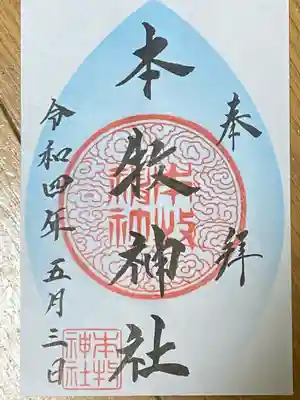 奉拝
本牧神社
令和四年五月三日
本牧神社
本牧神社